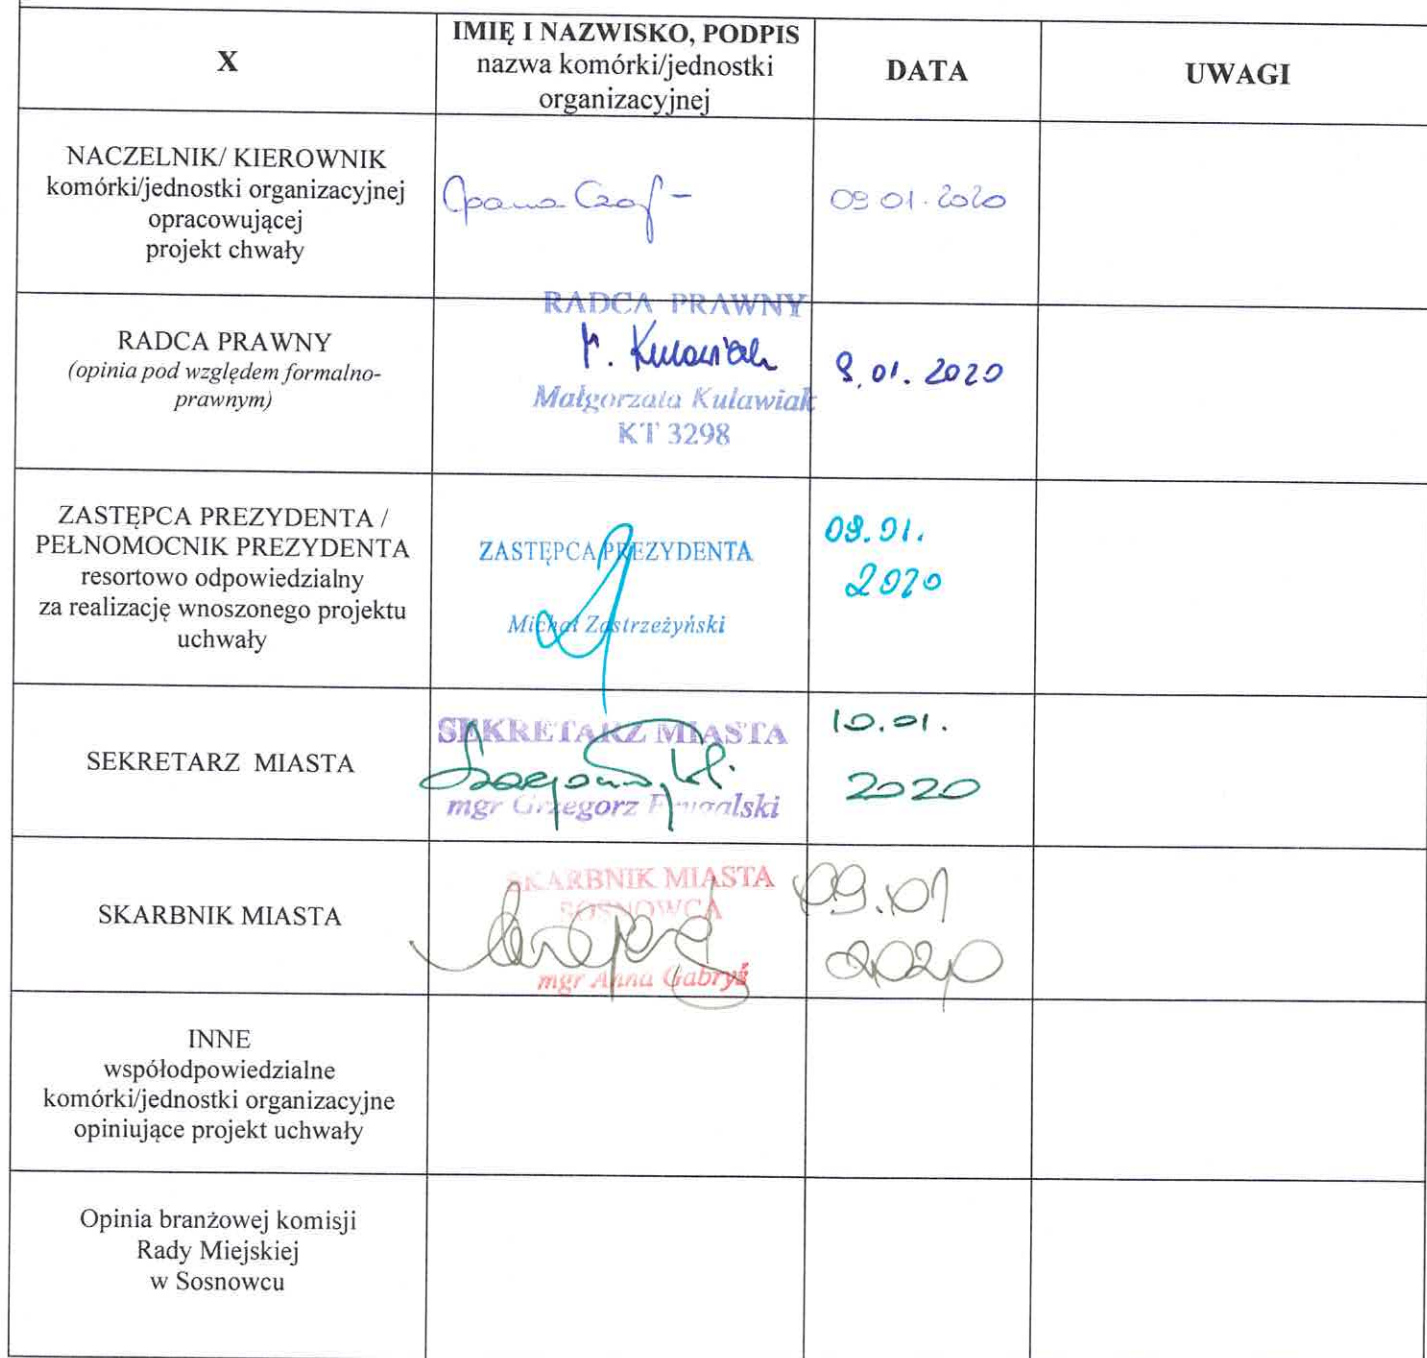 X
IMIĘ I NAZWISKO, PODPIS
nazwa komórki/jednostki
organizacyjnej
DATA
UWAGI
NACZELNIK/ KIEROWNIK
komórki/jednostki organizacyjnej
opracowującej
projekt chwały
09 01. 2020
RADCA PRAWNY
(opinia pod względem formalno-
prawnym)
RADCA PRAWNY
M. Kulawiak
Małgorzata Kulawiak
KT 3298
9.01.2020
ZASTĘPCA PREZYDENTA /
PEŁNOMOCNIK PREZYDENTA
resortowo odpowiedzialny
za realizację wnoszonego projektu
uchwały
ZASTĘPCA PREZYDENTA
Michał Zastrzeżyński
09.01.
2020
SEKRETARZ MIASTA
SEKRETARZ MIASTA
mgr Grzegorz
10.01.
2020
SKARBNIK MIASTA
SKARBNIK MIASTA
SOSNOWCA
mgr Anna Gabryś
09.01
2020
INNE
współodpowiedzialne
komórki/jednostki organizacyjne
opiniujące projekt uchwały
Opinia branżowej komisji
Rady Miejskiej
w Sosnowcu